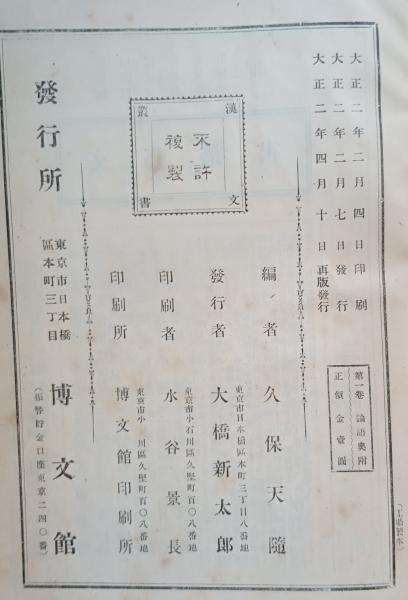 大正二年二月四日印刷
大正二年二月七日發行
大正二年四月十日再版發行
第一卷 論語奧附
正價金壹圓
漢文叢書
不許複製
編者 久保天隨
東京市日本橋區本町三丁目八番地
發行者 大橋新太郎
東京市小石川區久堅町百〇八番地
印刷者 水谷景長
東京市小石川區久堅町百〇八番地
印刷所 博文館印刷所
發行所
東京市日本橋
區本町三丁目
博文館
(振替貯金口座東京二四〇番)